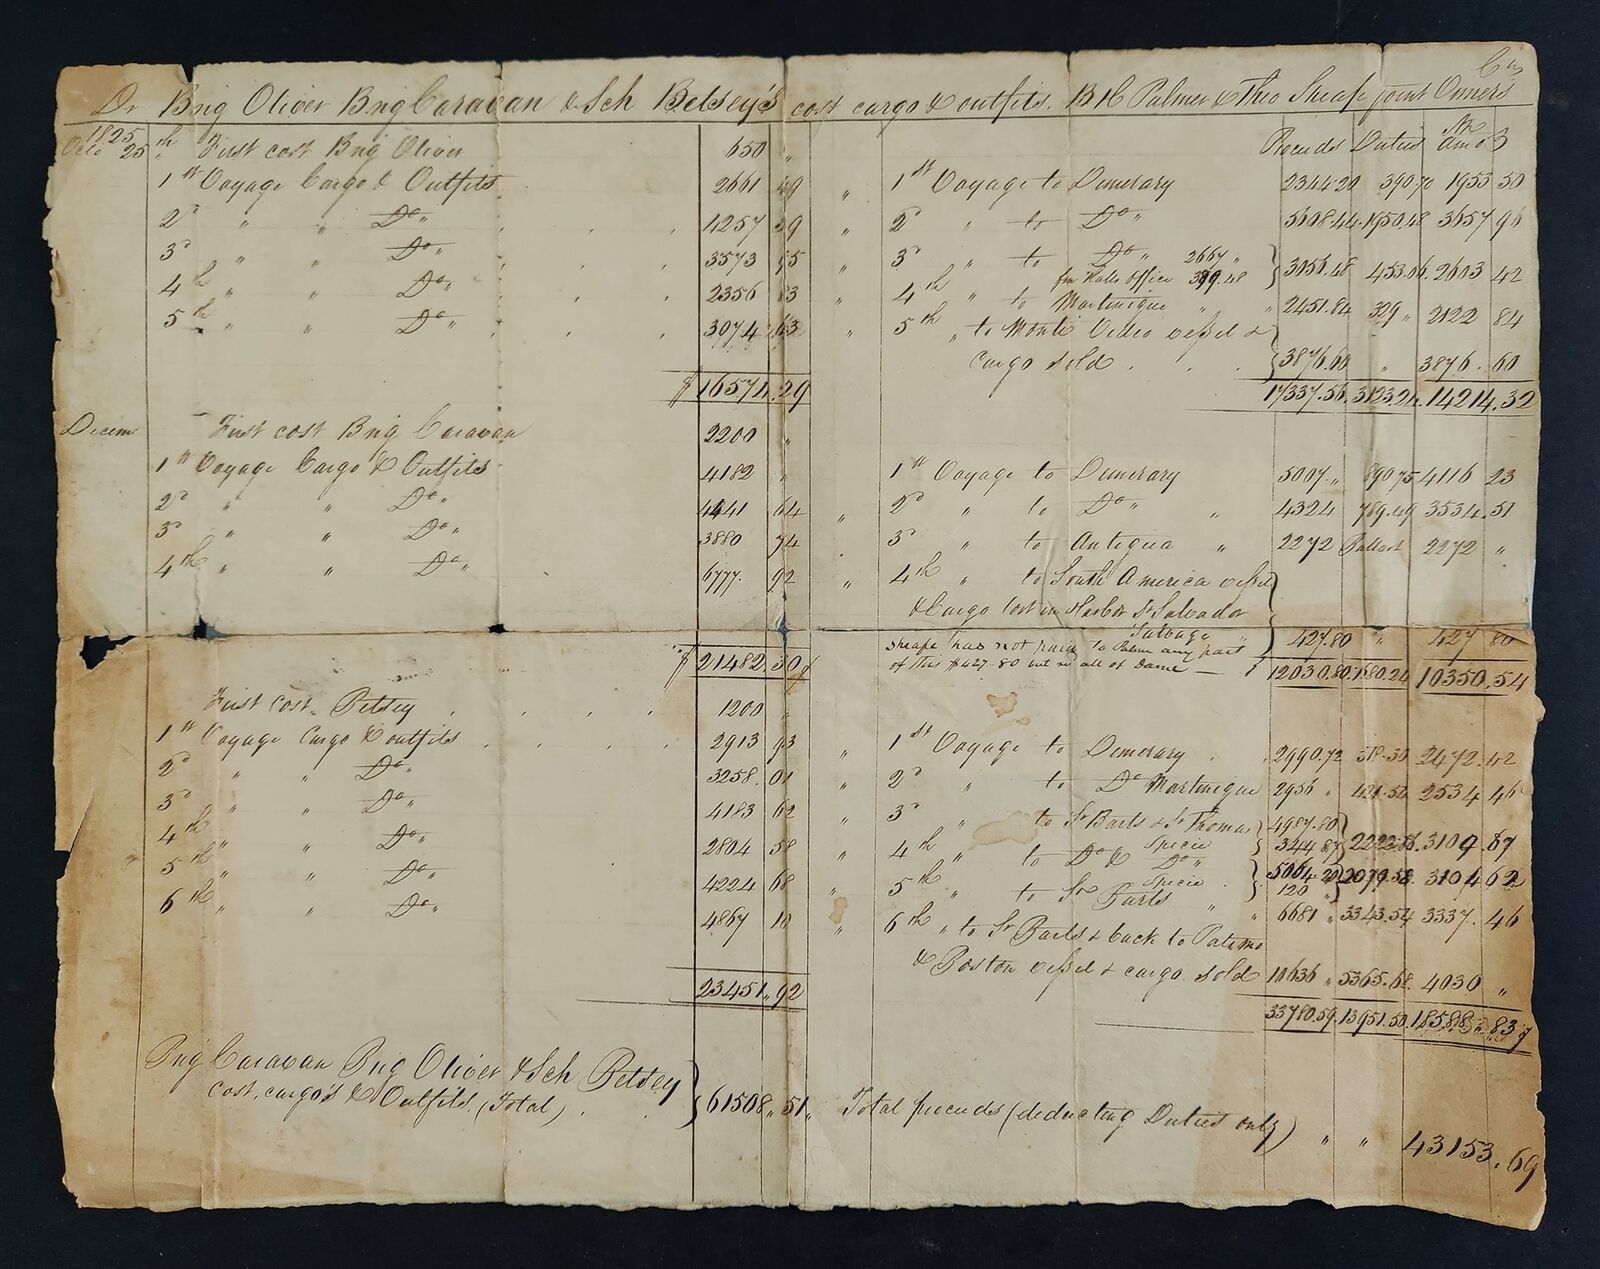 Dr Brig Oliver Brig Caravan & Sch Betsey's cost cargo & outfits. B H Palmer & Theo Sheafe joint Owners Crs
1825 Proceeds Duties Nt Amo
Octo 25th First cost Brig Oliver 650 "
1st Voyage Cargo & Outfits 2661 49 " 1st Voyage to Dimerary 2344.20 390.70 1953 50
2d " " Do " 4257 39 " 2d " to Do " 5608.44 1950.48 3657 96
3d " " Do " 3573 95 " 3d " to Do " 2667 "
fm Halls office 389.48 } 3056.48 453.06 2603 42
4th " " Do " 2356 83 " 4th " to Martinique " " 2451.84 329 " 2122 84
5th " " Do " 3074 63 " 5th " to Monte Video vessel &
Cargo sold . . . } 3876.60 " 3876.60
$16574.29 17337.56 3123.24 14214.32
Decem First cost Brig Caravan 2200 "
1st Voyage Cargo & Outfits 4182 " 1st Voyage to Dimerary 5007 " 890 75 4116 23
2d " " Do " 4441 64 " 2d " to Do " " 4324 789.49 3534.51
3d " " Do " 3880 74 3d " to Antigua " 2272 Ballast 2272 "
4th " " Do " 6777. 92 " 4th " to South America vessel
& Cargo lost in Harbor St Salvador
Salvage " } 427.80 " 427 80
Sheafe has not paid to Palmer any part
of the $427.80 int on all of same
$21482.30 12030.80 1680.24 10350.54
First cost Betsey . . . . 1200 "
1st Voyage Cargo & outfits . . . . 2913 93 " 1st Voyage to Dimerary . 2990.72 518.30 2472.42
2d " " Do " 3258.01 " 2d " to Do Martinique 2956 " 421.54 2534 46
3d " " Do " 4183 62 " 3d " to St Barts & St Thomas 4987.80
Specie 344 87 } 2222.86 3109 87
4th " " Do " 2804 58 " 4th " to Do & Do "
Specie . 5064.20
120 } 2079.58 3104 62
5th " " Do " 4224 68 " 5th " to St Barts " " 6681 " 3343.54 3337. 46
6th " " Do " 4867 10 " 6th " to St Barts & back to Palermo
& Boston vessel & cargo sold 10636 " 5365.68 4030 "
23451.92 33780.59 13951.50 18588.83
Brig Caravan Brig Oliver & Sch Betsey
cost, cargo's & Outfits (Total) . . } 61508.51 " Total proceeds (deducting Duties only) " " 43153.69